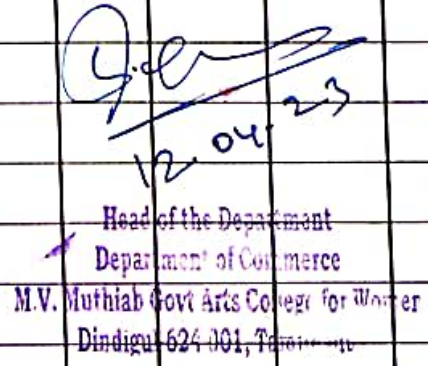 12.04.23
Head of the Department
Department of Commerce
M.V. Muthiah Govt Arts College for Women
Dindigul-624 001,